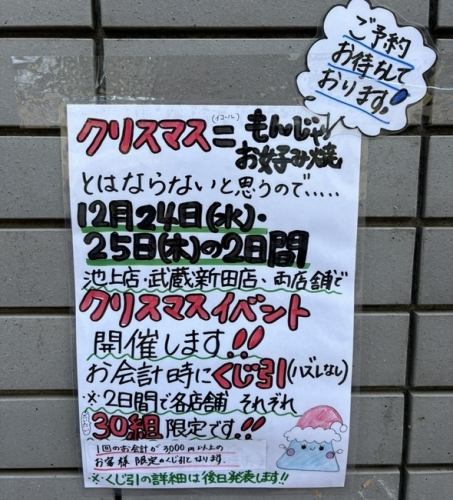 ご予約
お待ちして
おります!
クリスマス＝もんじゃ
(イコール)
お好み焼
とはならないと思うので.....
12月24日(水)・
25日(木)の2日間
池上店・武蔵新田店、両店舗で
クリスマスイベント
開催します!!
お会計時にくじ引(ハズレなし)
※2日間で各店舗 それぞれ
30組限定です!!
1回のお会計が3000円以上の
お客様限定のくじ引となります。
※くじ引の詳細は後日発表します!!